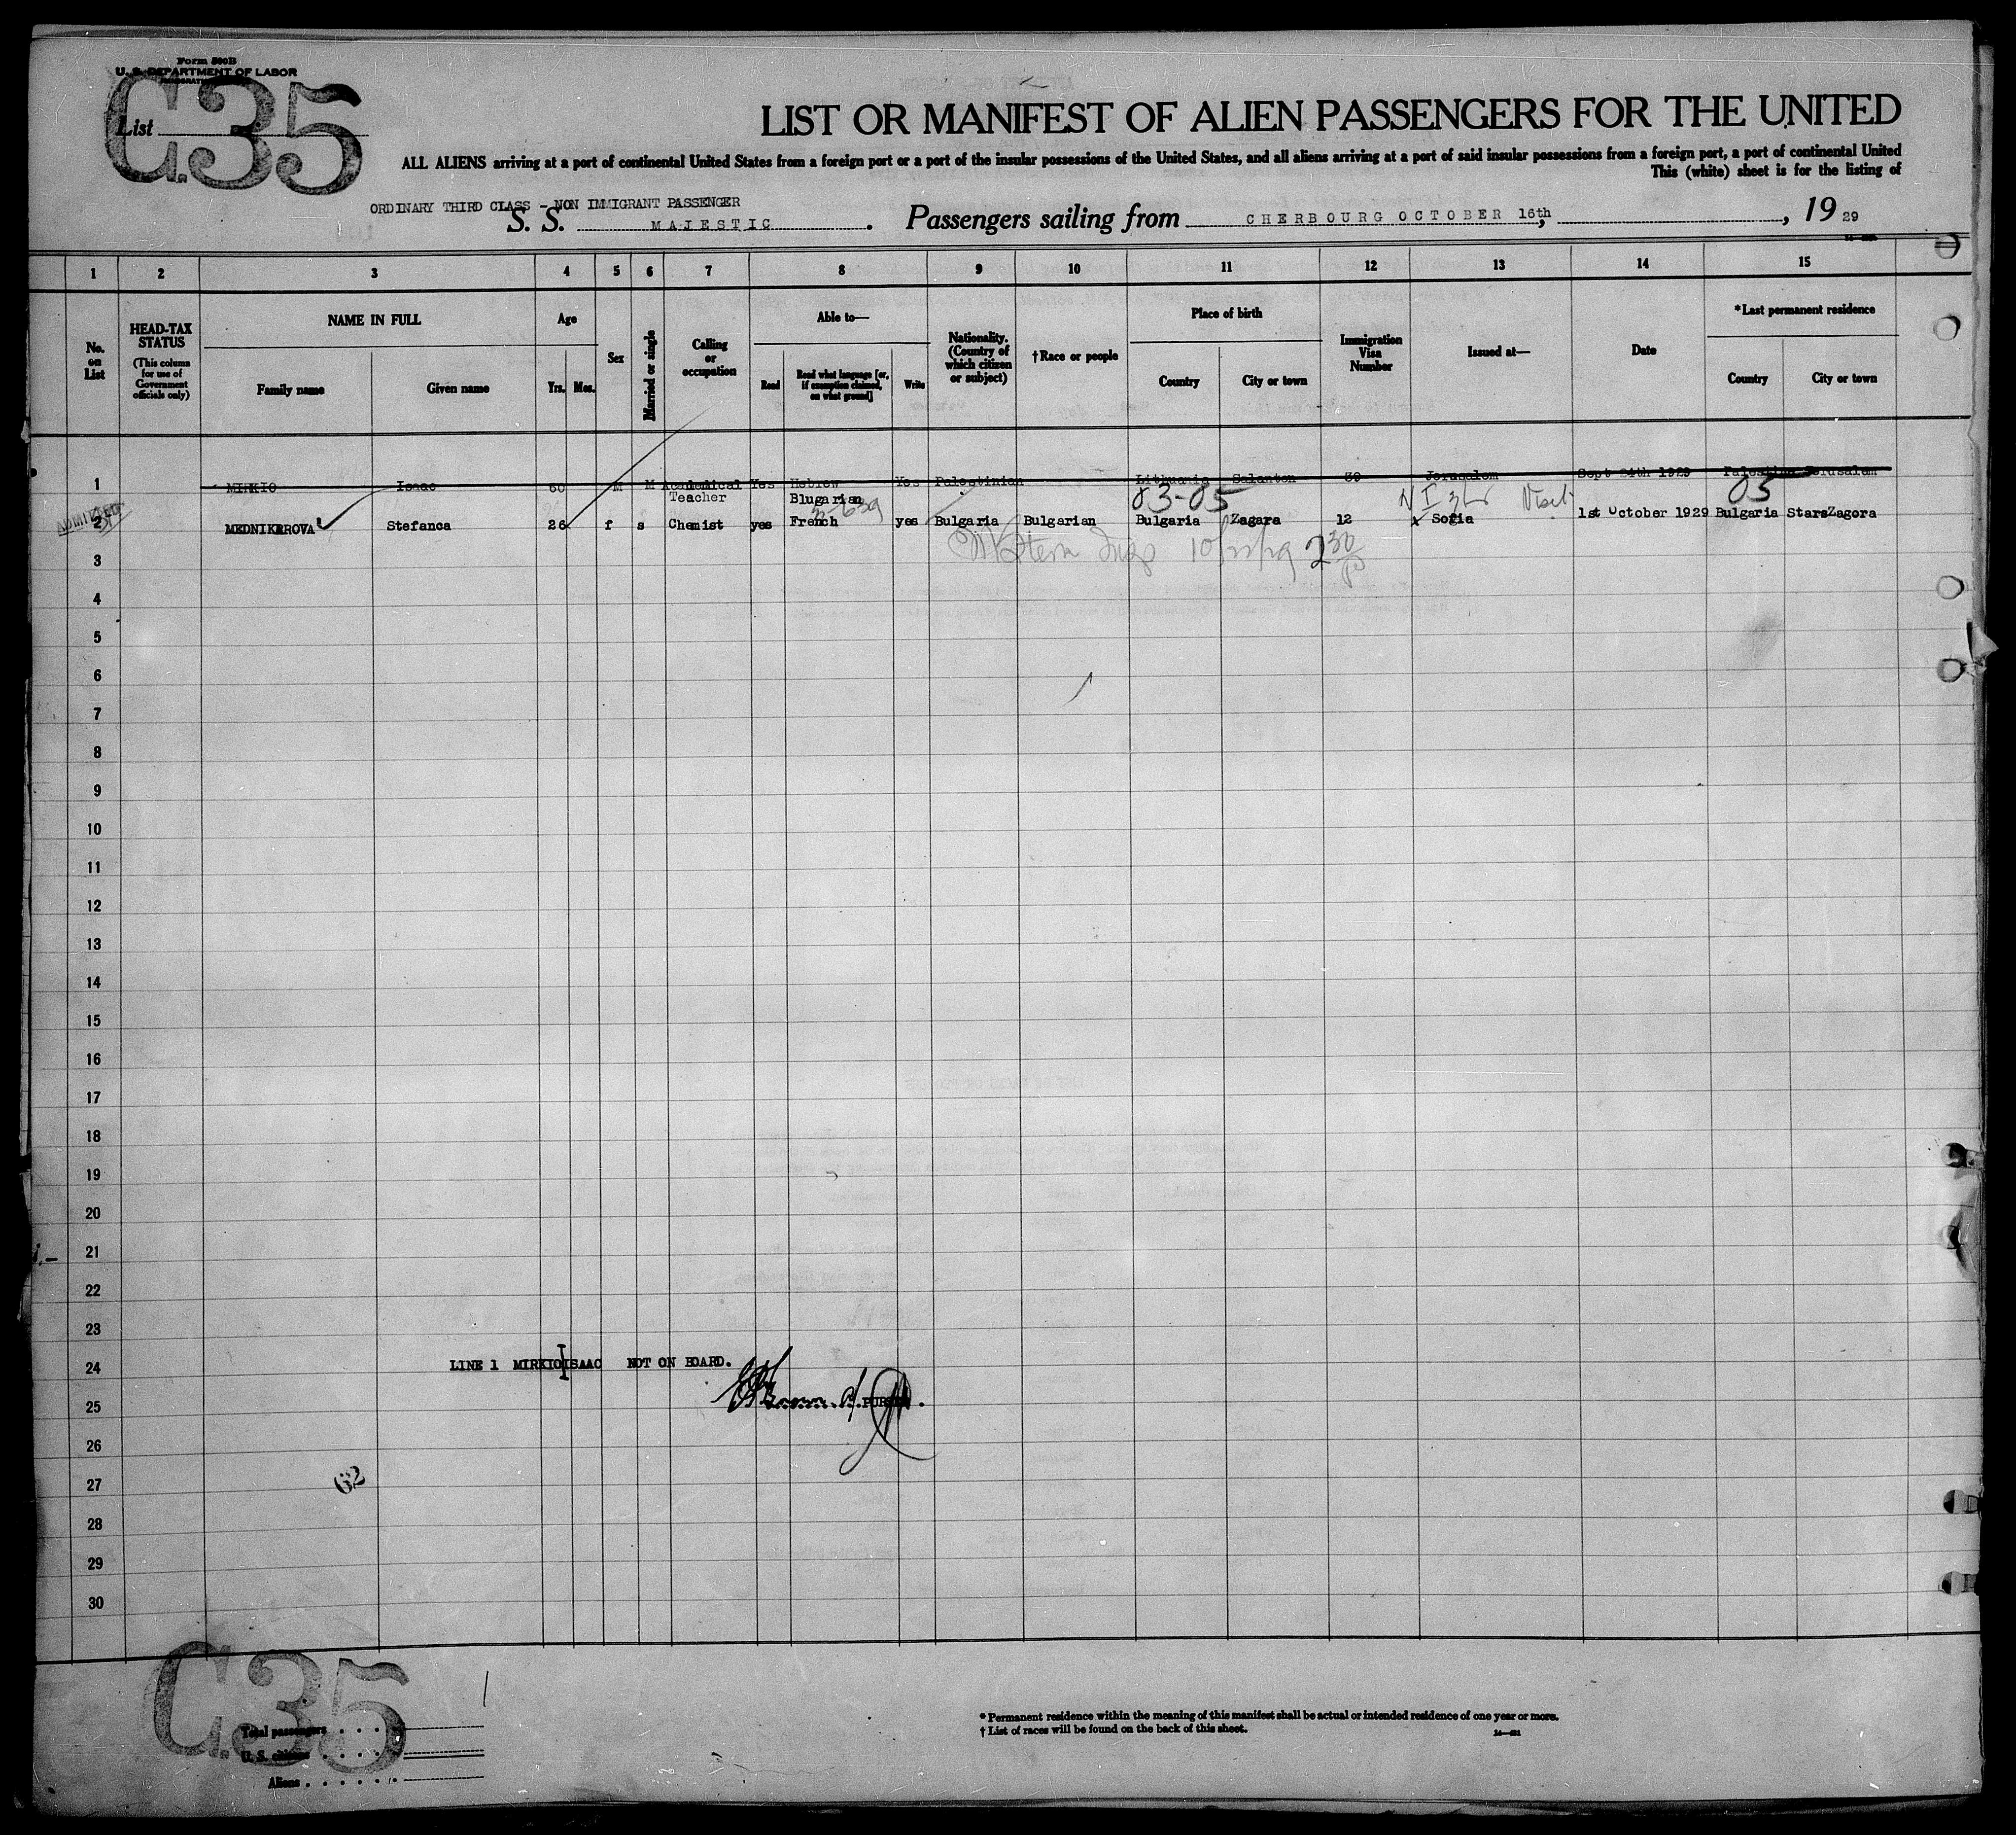 Form 500B
U. S. DEPARTMENT OF LABOR
C.35
List
LIST OR MANIFEST OF ALIEN PASSENGERS FOR THE UNITED
ALL ALIENS arriving at a port of continental United States from a foreign port or a port of the insular possessions of the United States, and all aliens arriving at a port of said insular possessions from a foreign port, a port of continental United
This (white) sheet is for the listing of
ORDINARY THIRD CLASS - NON IMMIGRANT PASSENGER
S. S. MAJESTIC. Passengers sailing from CHERBOURG OCTOBER 16th, , 19 29
1 2 3 4 5 6 7 8 9 10 11 12 13 14 15
No. on List
HEAD-TAX STATUS (This column for use of Government officials only)
NAME IN FULL
Family name
Given name
Age
Yrs. Mos.
Sex
Married or single
Calling or occupation
Able to—
Read
Read what language [or, if exemption claimed, on what ground]
Write
Nationality. (Country of which citizen or subject)
†Race or people
Place of birth
Country
City or town
Immigration Visa Number
Issued at—
Date
*Last permanent residence
Country
City or town
1 MIRKIO Isaac 60 M M Academical Teacher Yes Hebrew Yes Palestinian Lithuania Salanton 39 Jerusalem Sept 24th 1929 Palestine Jerusalem
03-05 05
ADMITTED
2 MEDNIKEROVA Stefanca 26 f s Chemist yes Blugarian French yes Bulgaria Bulgarian Bulgaria Zagara 12 Sofia 1st October 1929 Bulgaria StaraZagora
3
4
5
6
7
8
9
10
11
12
13
14
15
16
17
18
19
20
21
22
23
24 LINE 1 MIRKIO ISAAC NOT ON BOARD.
25 PURSER.
26
27
62
28
29
30
C.35
1
Total passengers
U. S. citizens
Aliens
* Permanent residence within the meaning of this manifest shall be actual or intended residence of one year or more.
† List of races will be found on the back of this sheet.